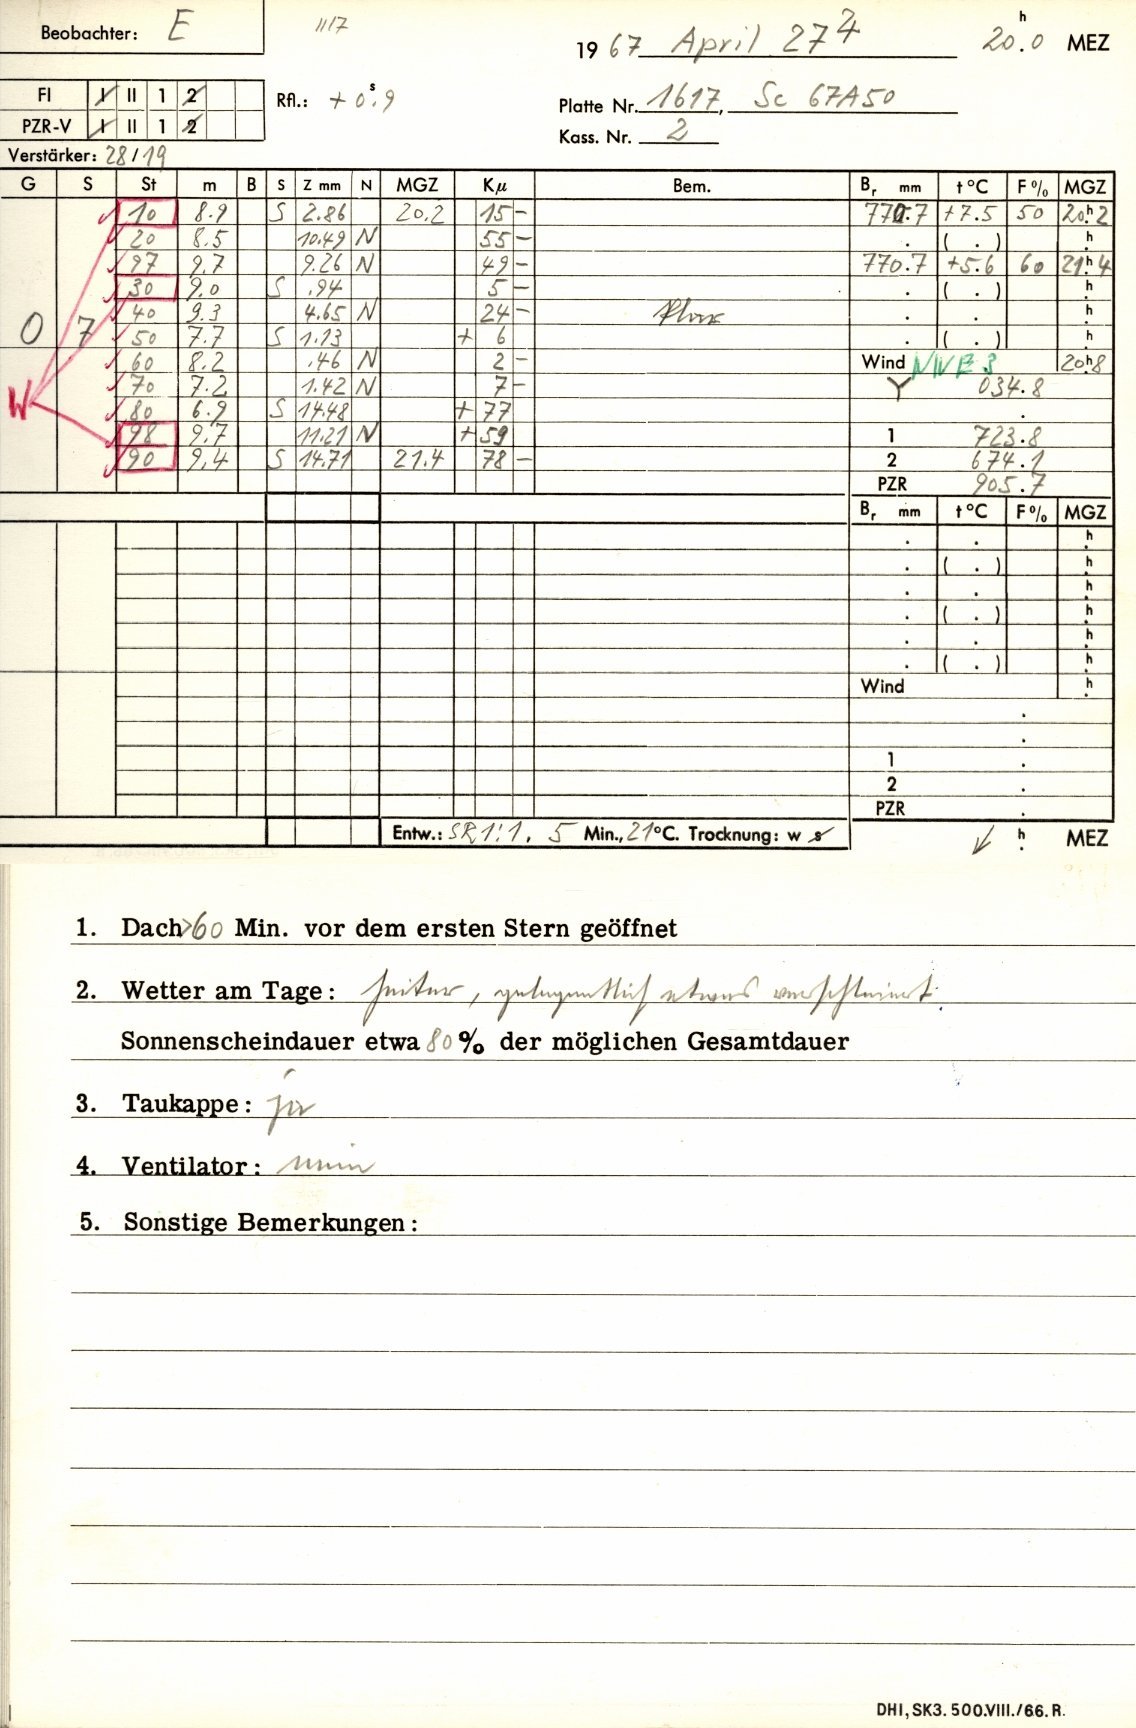 Beobachter: E
1117
1967 April 27
20.0 h MEZ
FI I II 1 2
Rfl.: + 0.9 s
Platte Nr. 1617, Sc 67A50
PZR-V I II 1 2
Kass. Nr. 2
Verstärker: 28/19
G S St m B S Z mm N MGZ Kµ Bem. Br mm t °C F % MGZ
10 8.9 S 2.86 20.2 15 - 770.7 +7.5 50 20.h2
20 8.5 10.49 N 55 - . ( . ) h
97 9.7 9.26 N 49 - 770.7 +5.6 60 21.h4
30 9.0 S .94 5 - . ( . ) h
40 9.3 4.65 N 24 - . . h
0 7 50 7.7 S 1.13 + 6 . ( . ) h
60 8.2 .46 N 2 - Wind NNE 3 20h8
W 70 7.2 1.42 N 7 - Y 034.8
80 6.9 S 14.48 + 77 .
98 9.7 11.21 N + 59 1 723.8
90 9.4 S 14.71 21.4 78 - 2 674.1
PZR 905.7
Br mm t °C F % MGZ
. . h
. ( . ) h
. . h
. ( . ) h
. . h
. ( . ) h
Wind h
.
.
1 .
2 .
PZR .
Entw.: SR 1:1. 5 Min., 21°C. Trocknung: w s
h MEZ
1. Dach >60 Min. vor dem ersten Stern geöffnet
2. Wetter am Tage: heiter, gelegentlich etwas verschleiert.
Sonnenscheindauer etwa 80 % der möglichen Gesamtdauer
3. Taukappe: ja
4. Ventilator: nein
5. Sonstige Bemerkungen:
DHI, SK3. 500.VIII./66. R.